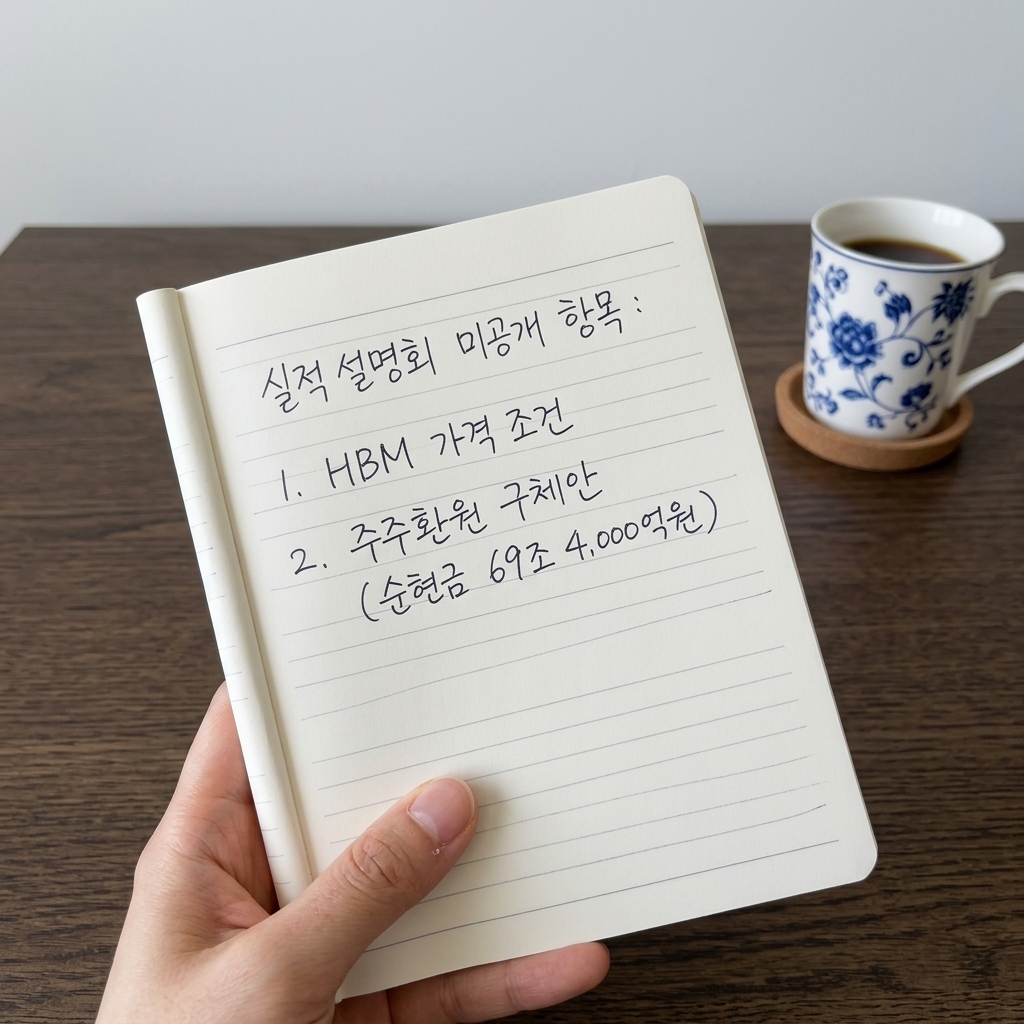 실적 설명회 미공개 항목 :
1. HBM 가격 조건
2. 주주환원 구체안
(순현금 69조 4,000억원)